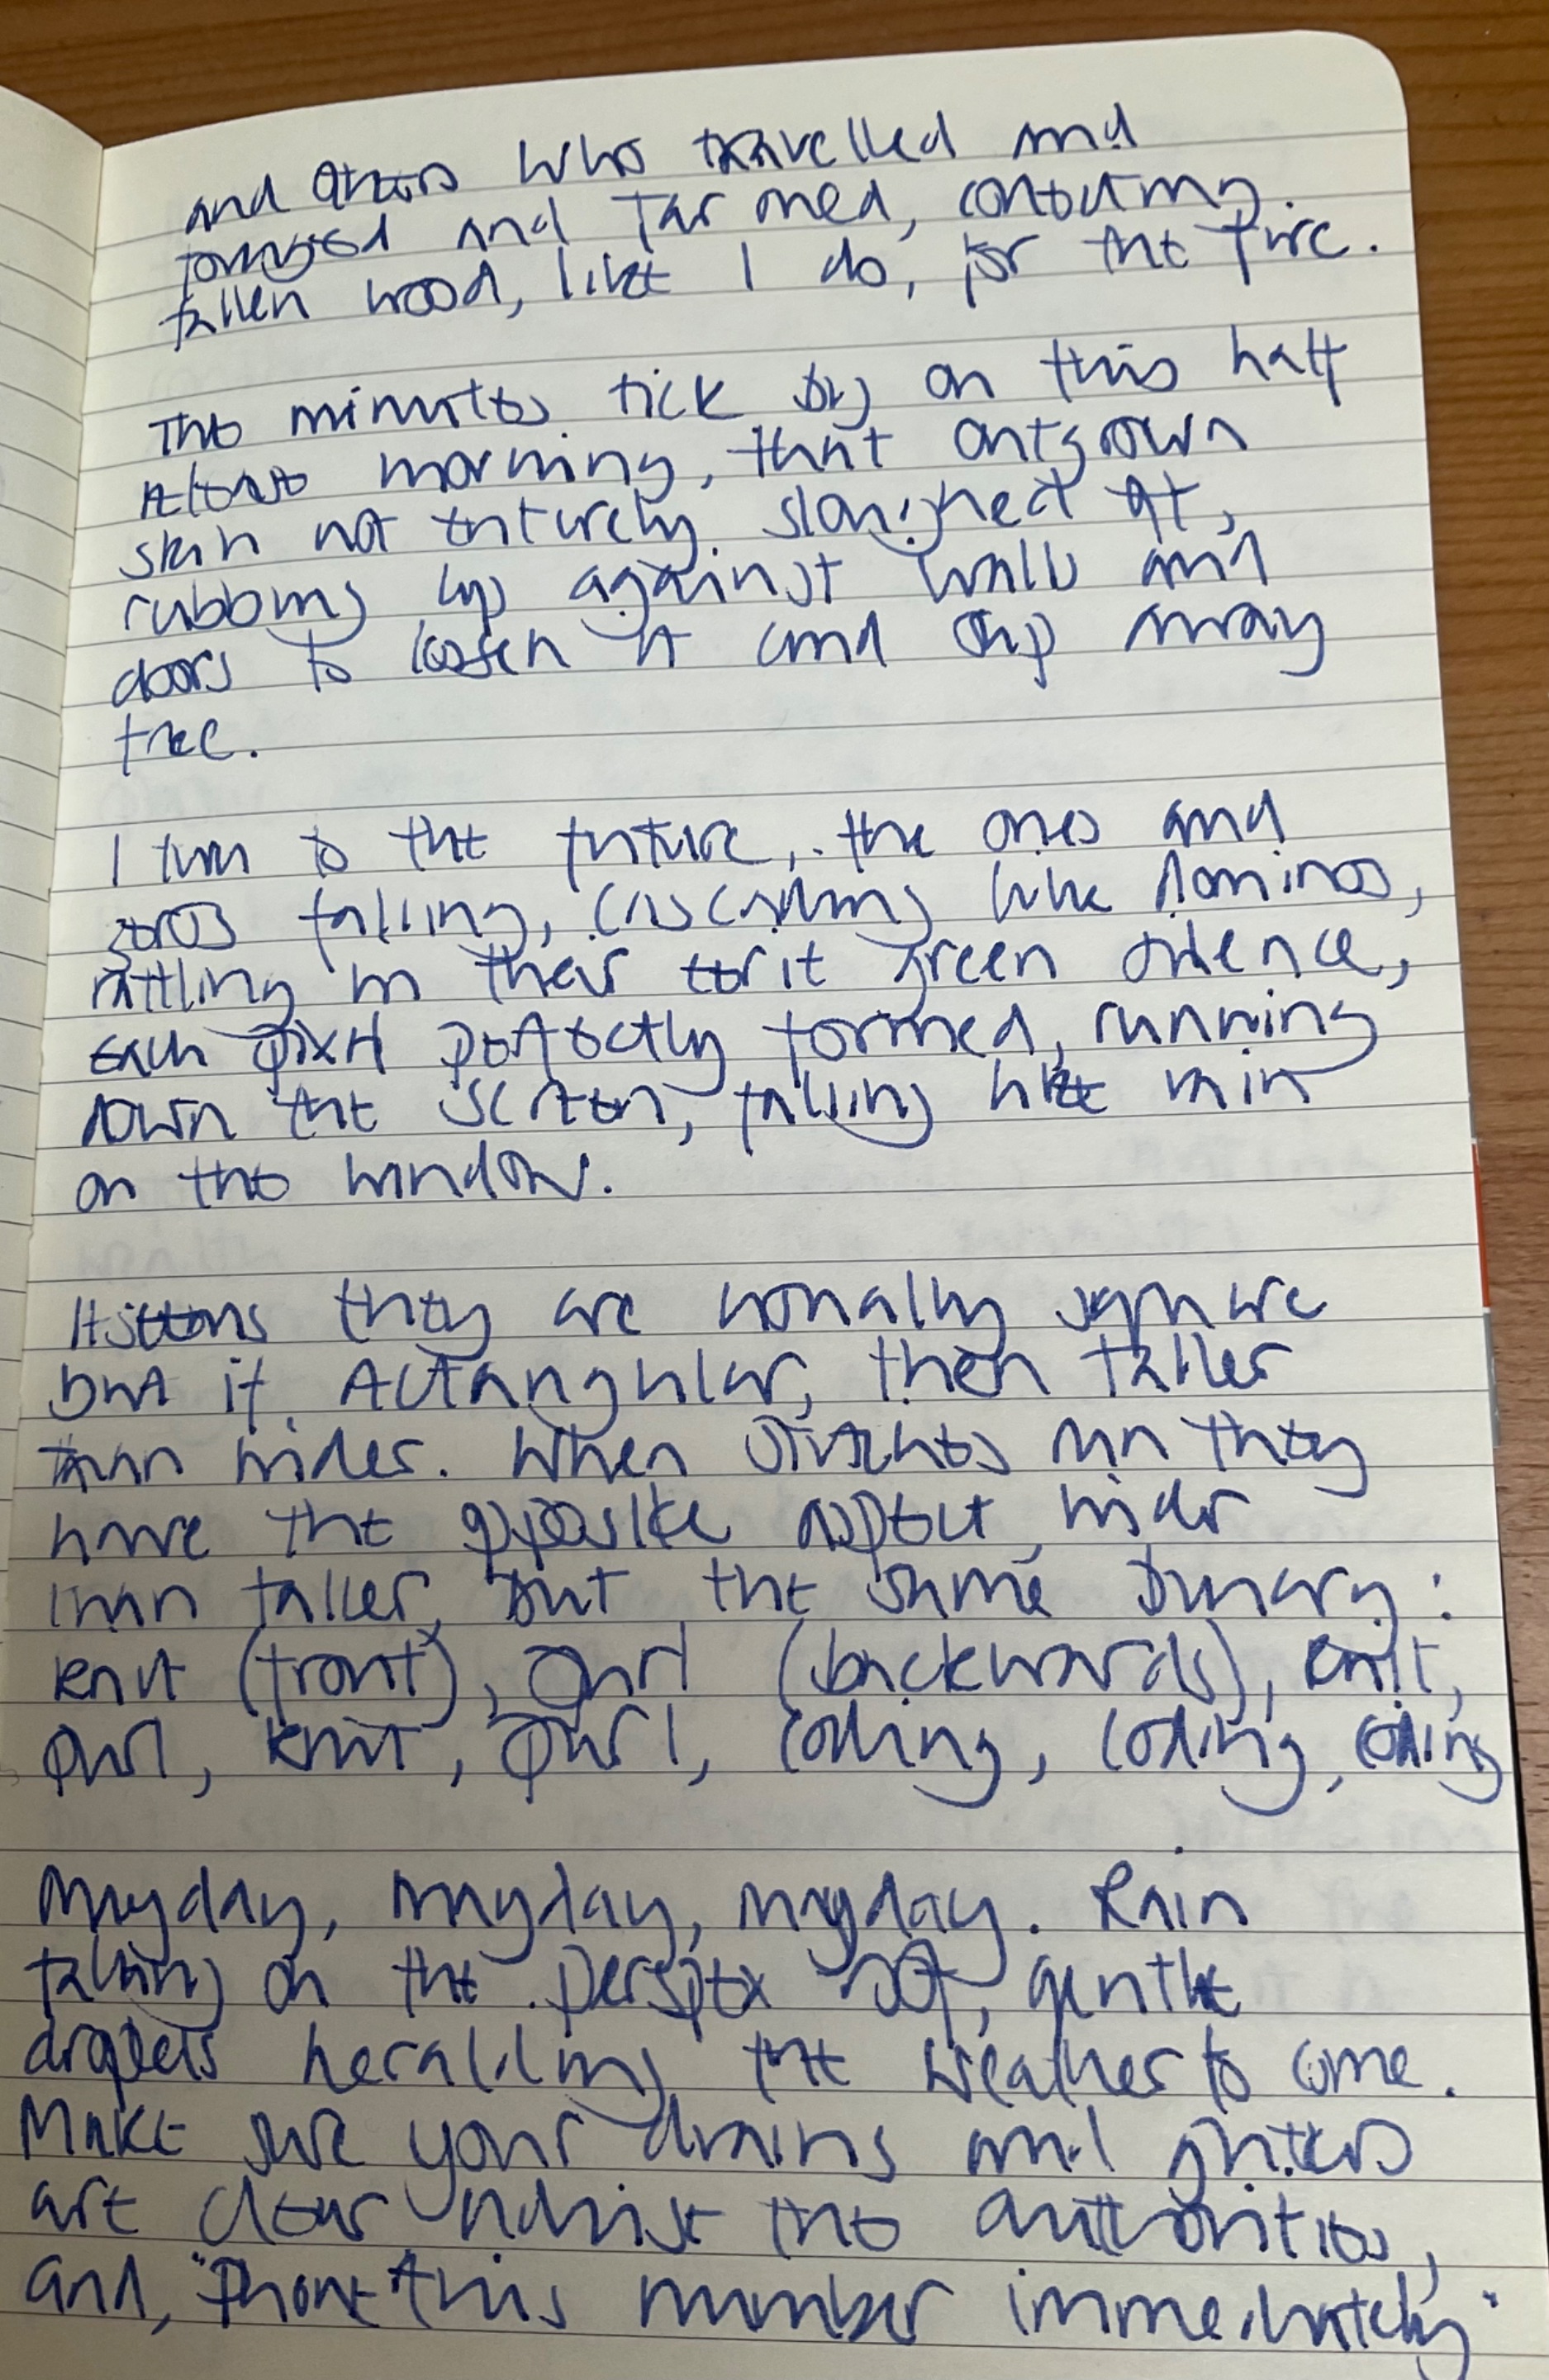 and others who travelled and
foraged and farmed, collecting
fallen wood, like I do, for the fire.
The minutes tick by on this half
morning, that outgrown
skin not entirely sloughed off,
rubbing up against walls and
doors to loosen it and slip away
free.
I turn to the future, the ones and
zeros falling, cascading like dominos,
rattling in their eerie green silence,
each pixel perfectly formed, running
down the screen, falling like rain
on the window.
they are usually square
but if rectangular, then taller
than wider. When stitches run they
have the opposite aspect, wider
than taller, but the same binary:
knit (front), purl (backwards), knit,
purl, knit, purl, coding, coding, coding
Mayday, mayday, mayday. Rain
falling on the perspex roof, gentle
droplets heralding the weather to come.
Make sure your drains and gutters
are clear advise the authorities,
and, "Phone this number immediately"